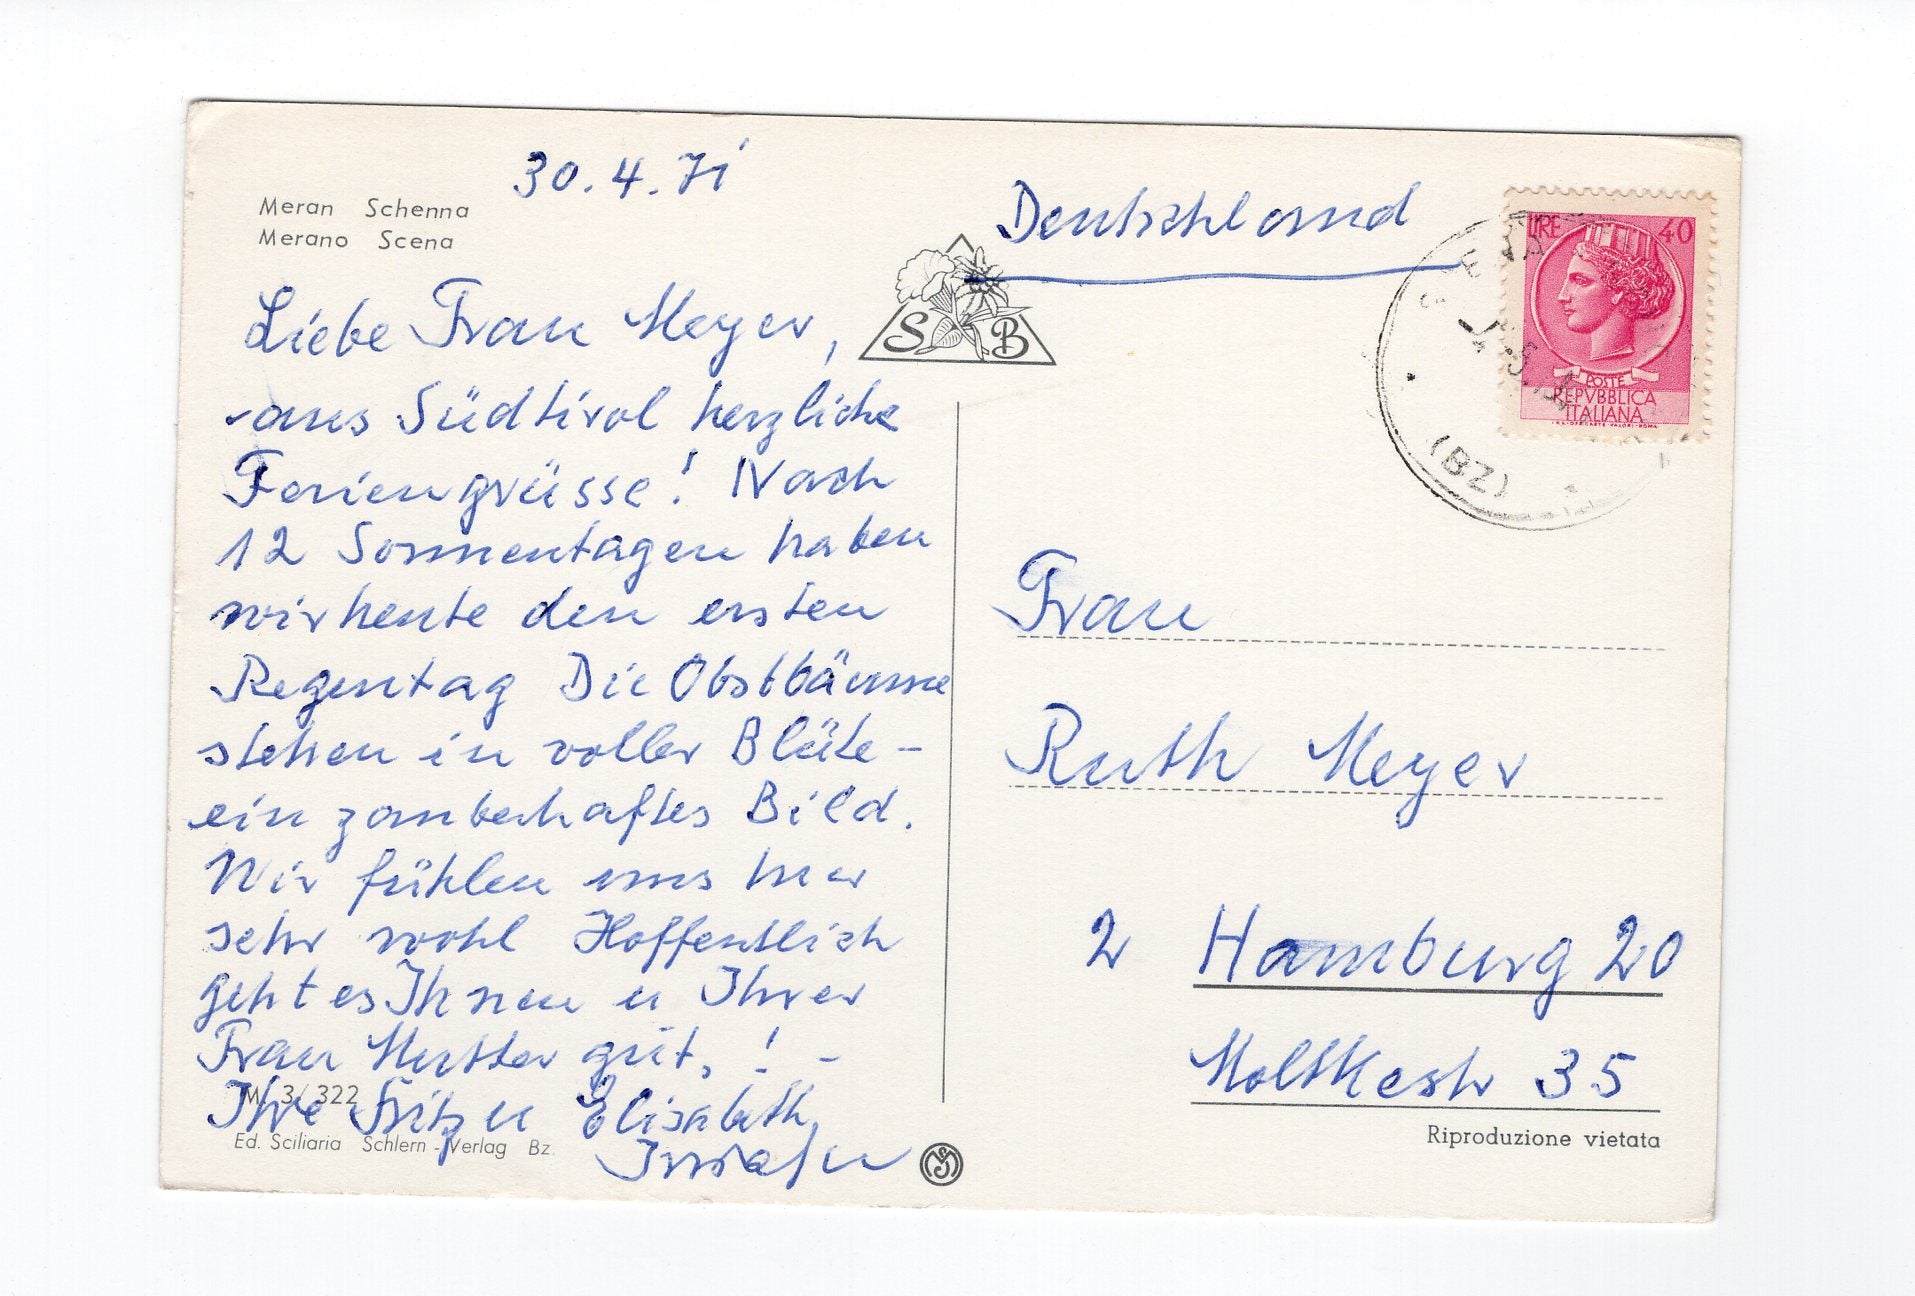 30.4.71
Meran Schenna
Merano Scena
Liebe Frau Meyer,
aus Südtirol herzliche
Feriengrüsse! Nach
12 Sonnentagen haben
wir heute den ersten
Regentag Die Obstbäume
stehen in voller Blüte -
ein zauberhaftes Bild.
Wir fühlen uns hier
sehr wohl Hoffentlich
geht es Ihnen u Ihrer
Frau Mutter gut. ! -
Ihre Fritz u Elisabeth
M. 3/322
Ed. Sciliaria Schlern - Verlag Bz.
S B
Deutschland
LIRE 40
POSTE
REPVBBLICA
ITALIANA
I.P.S.-OFF.CARTE-VALORI-ROMA
(BZ)
Frau
Ruth Meyer
2 Hamburg 20
Moltkestr 35
Riproduzione vietata